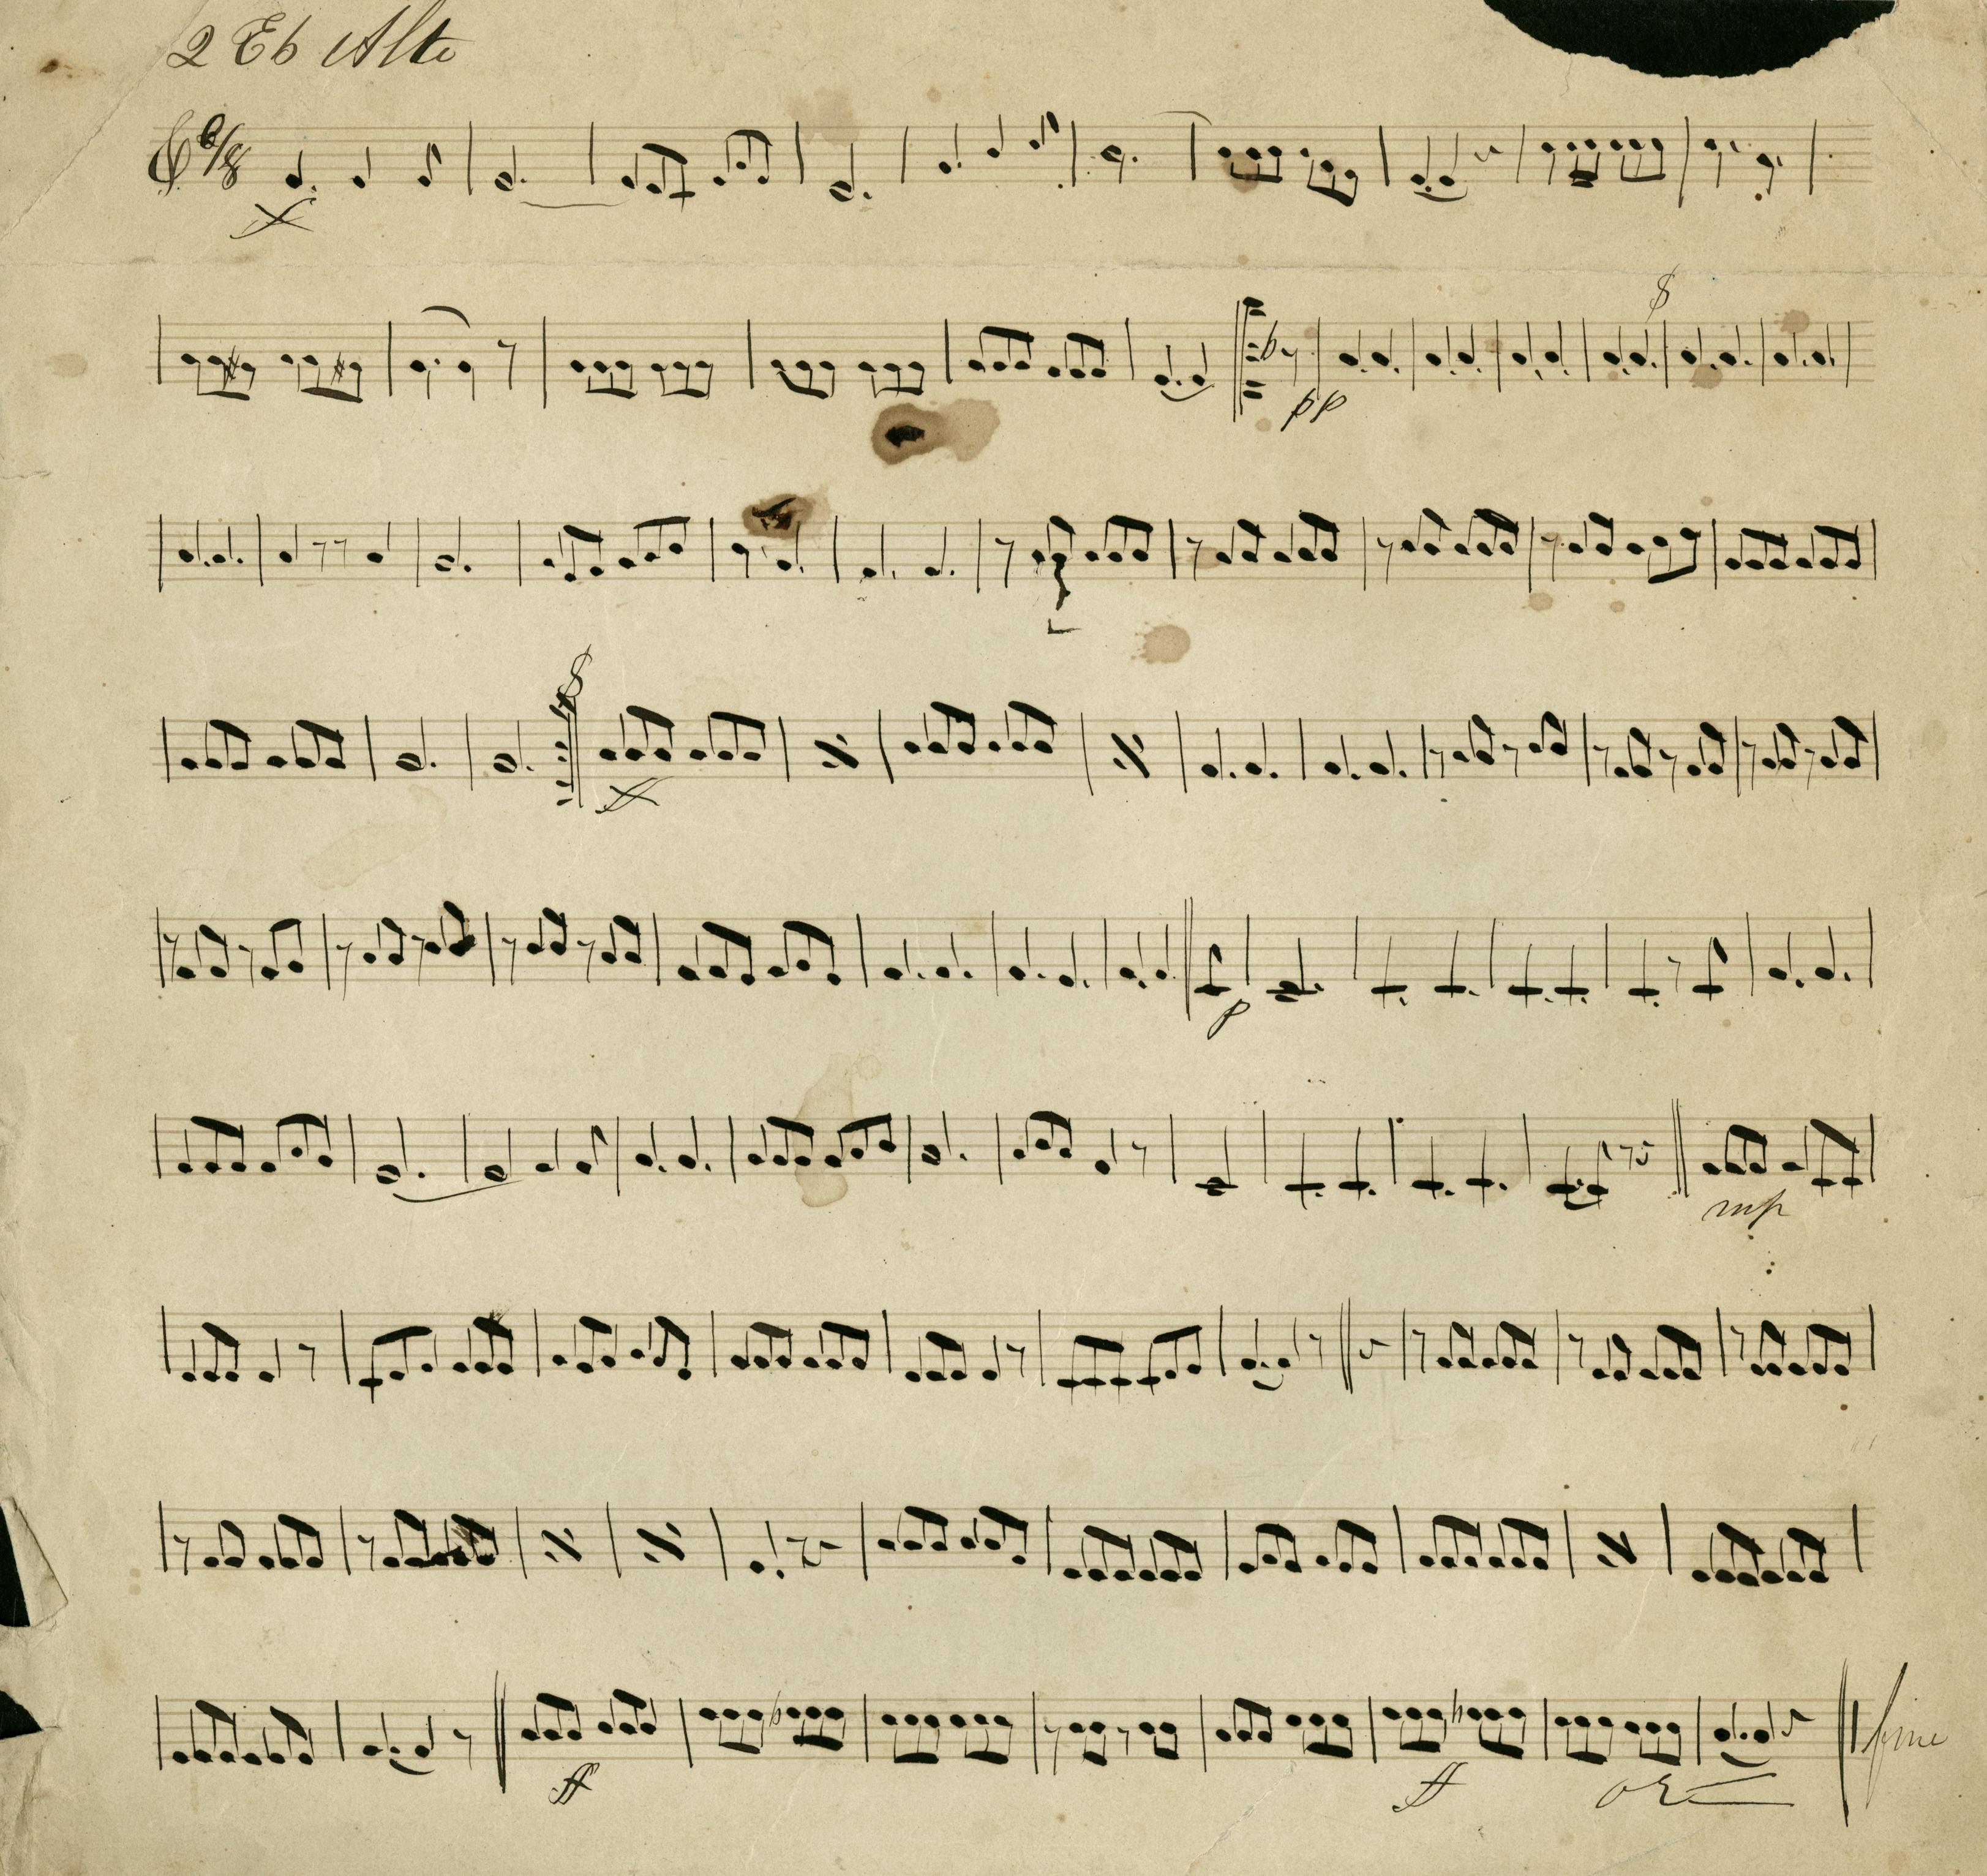 2 Eb Alto
6/8
f
pp
ff
p
mp
ff
ff
fine